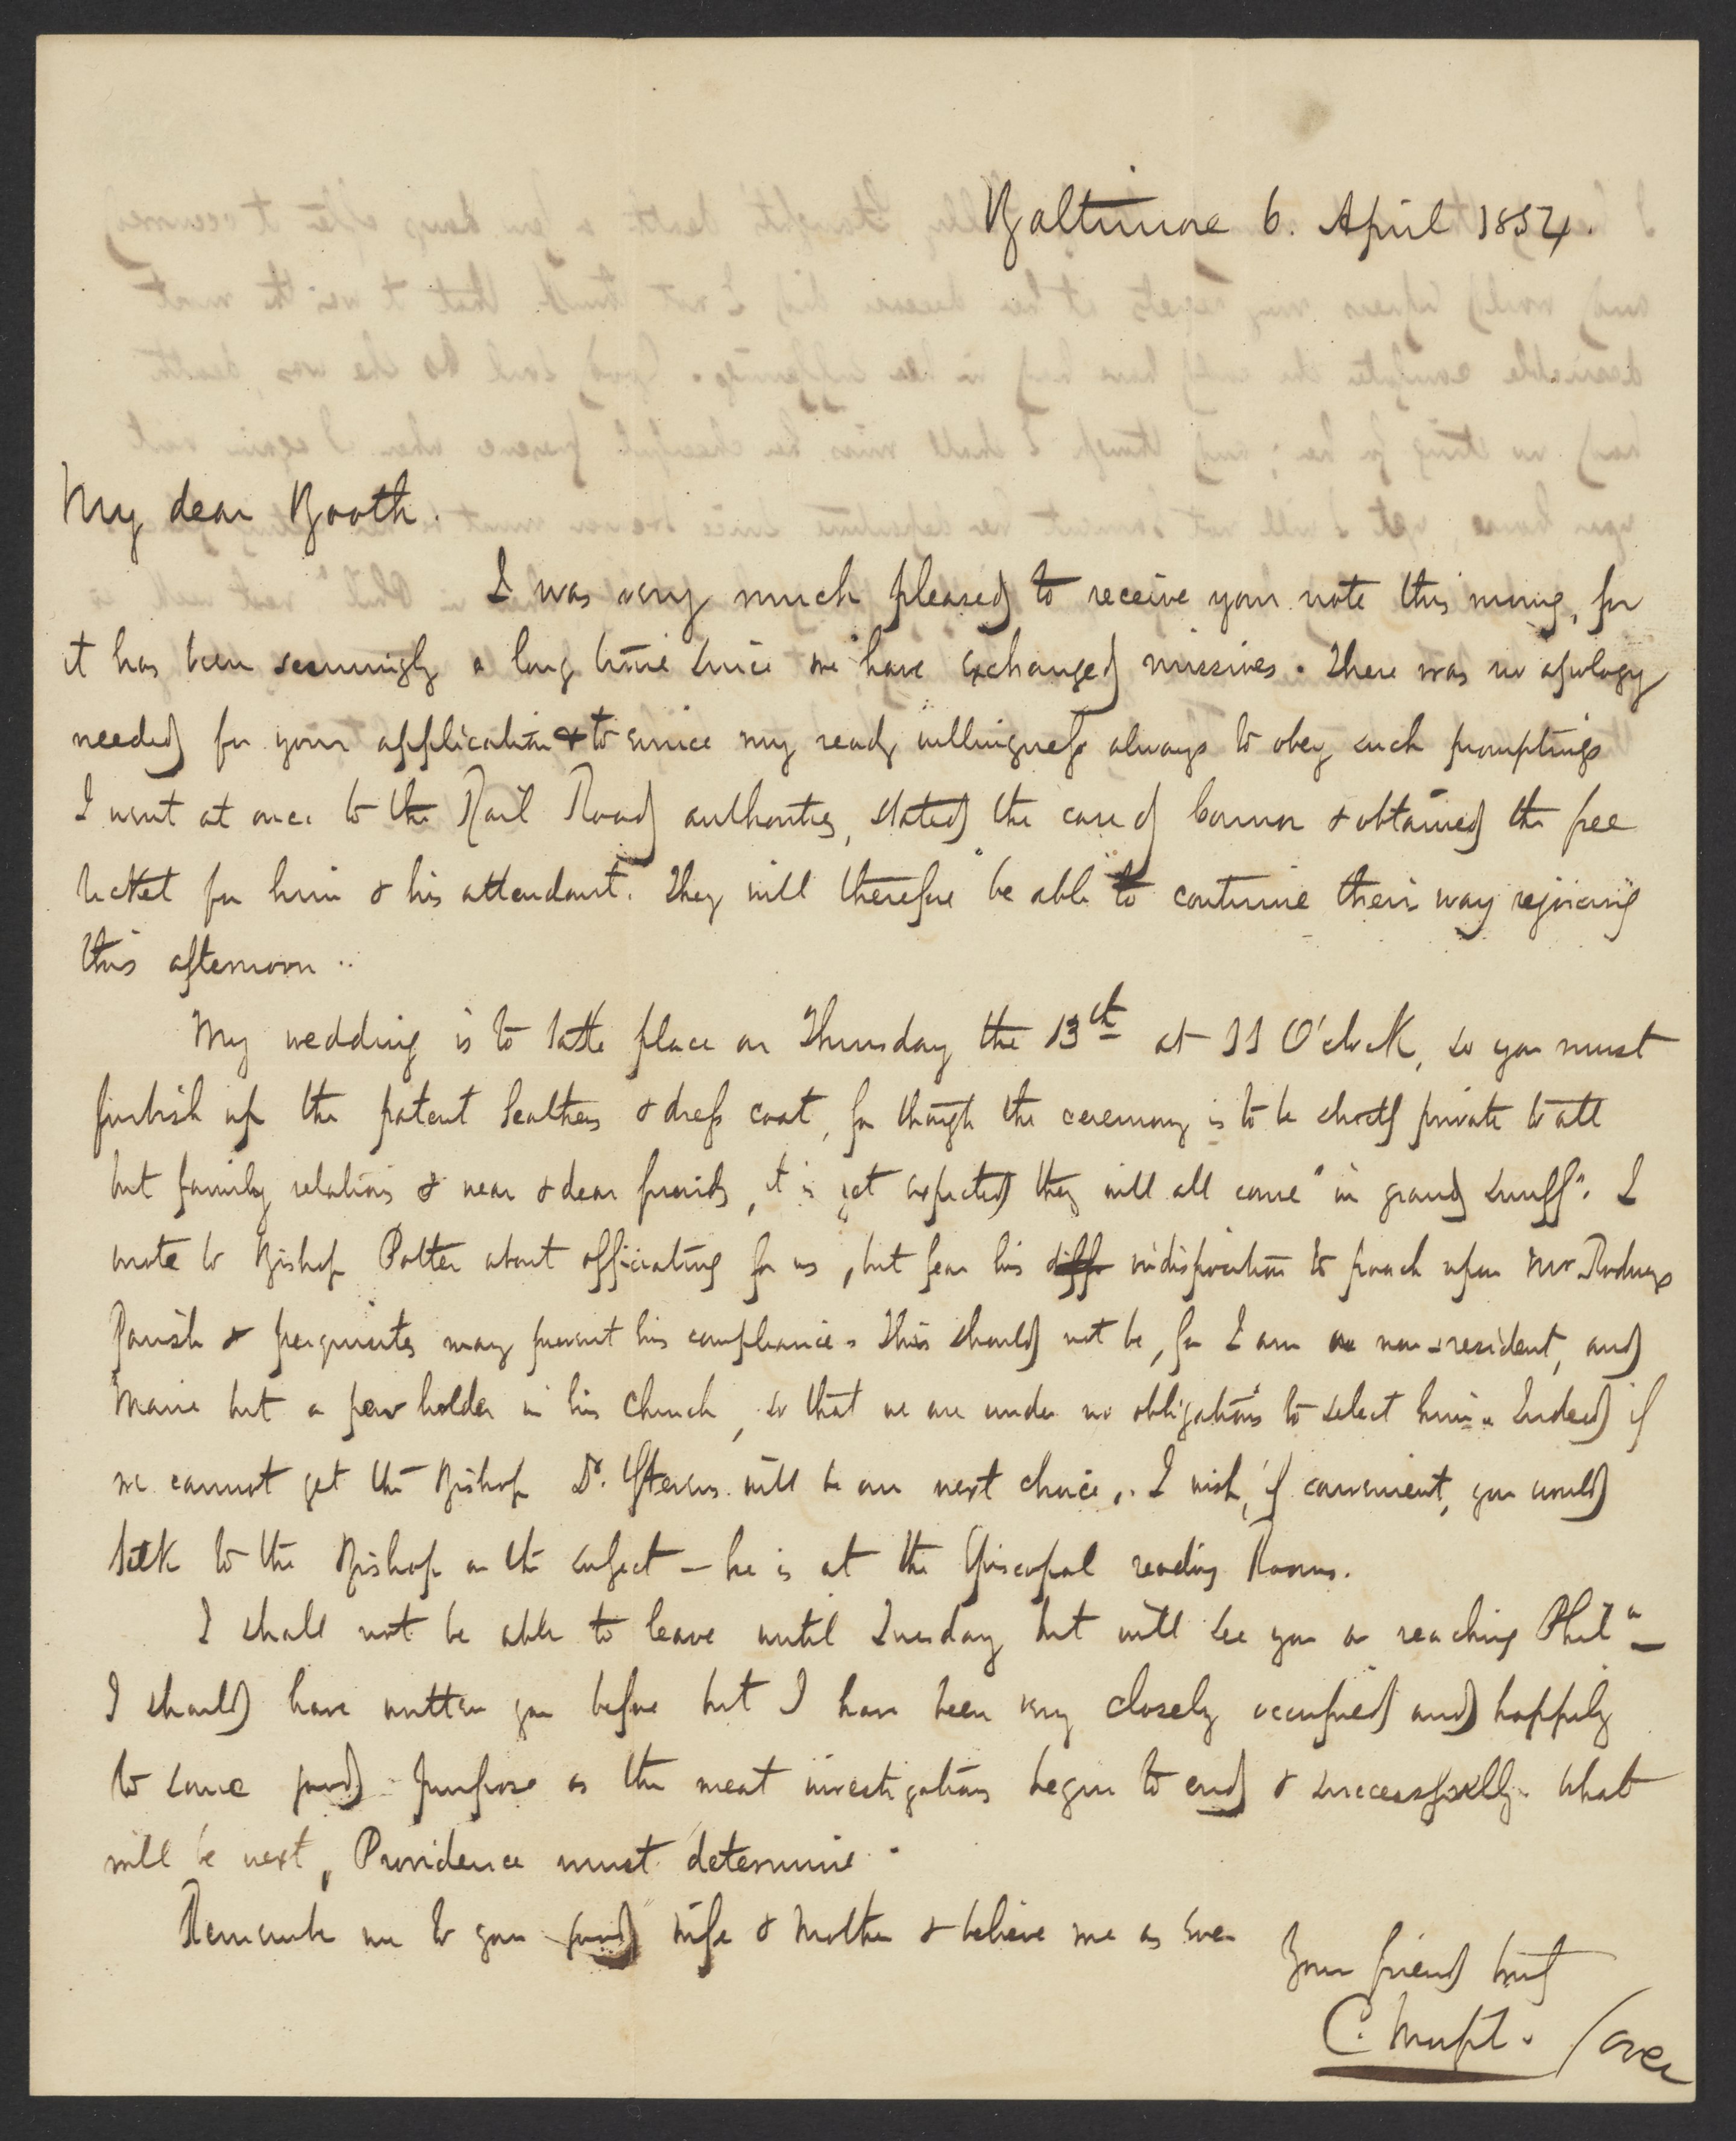 Baltimore 6. April 1854.
My dear Booth.
I was very much pleased to receive your note this morng, for
it has been seemingly a long time since we have exchanged missives. There was no apology
needed for your application & to evince my ready willingness always to obey such promptings
I went at once to the Rail Road authorities, stated the case of Connor & obtained the free
ticket for him & his attendant. They will therefore "be able to continue their way rejoicing"
this afternoon..
My wedding is to take place on Thursday the 13th at 11 O'clock, so you must
furbish up the patent leathers & dress coat, for though the ceremony is to be strictly private to all
but family relations & near & dear friends, it is yet expected they will all come "in grand snuff". I
wrote to Bishop Potter about officiating for us, but fear his diffe indisposition to poach upon Mr
Parish & perquisites may prevent his compliance. This should not be, for I am a non-resident, and
Marie but a pew holder in his Church, so that we are under no obligations to select him. Indeed if
we cannot get the Bishop Dr. Stevens will be our next choice. I wish, if convenient, you would
talk to the Bishop on the subject - he is at the Episcopal reading Rooms.
I shall not be able to leave until Tuesday but will see you on reaching Phila
I should have written you before but I have been very closely occupied and happily
to some good purpose as the meat investigations begin to end & successfully. What
will be next, Providence must determine.
Remember me to your good wife & Mother & believe me as ever
Your friend truly
C. Morfit. /over